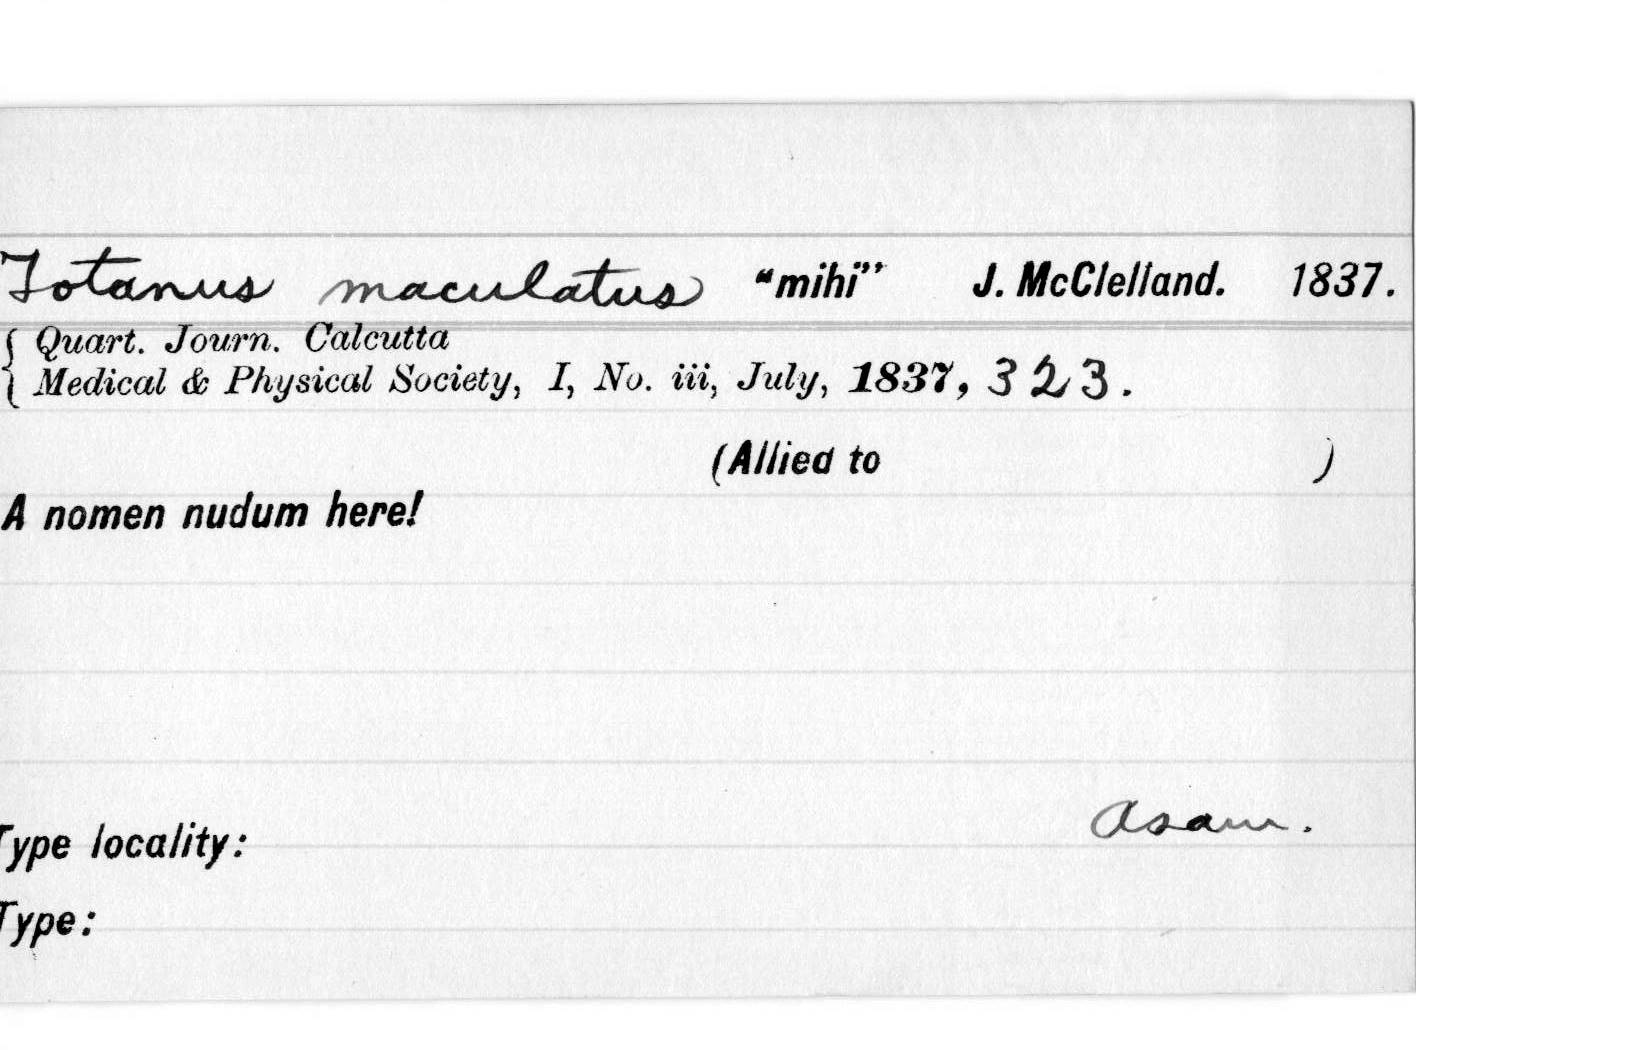 Totanus maculatus "mihi" J. McClelland. 1837.
Quart. Journ. Calcutta
Medical & Physical Society, I, No. iii, July, 1837, 323.
(Allied to )
A nomen nudum here!
Asam.
Type locality:
Type: